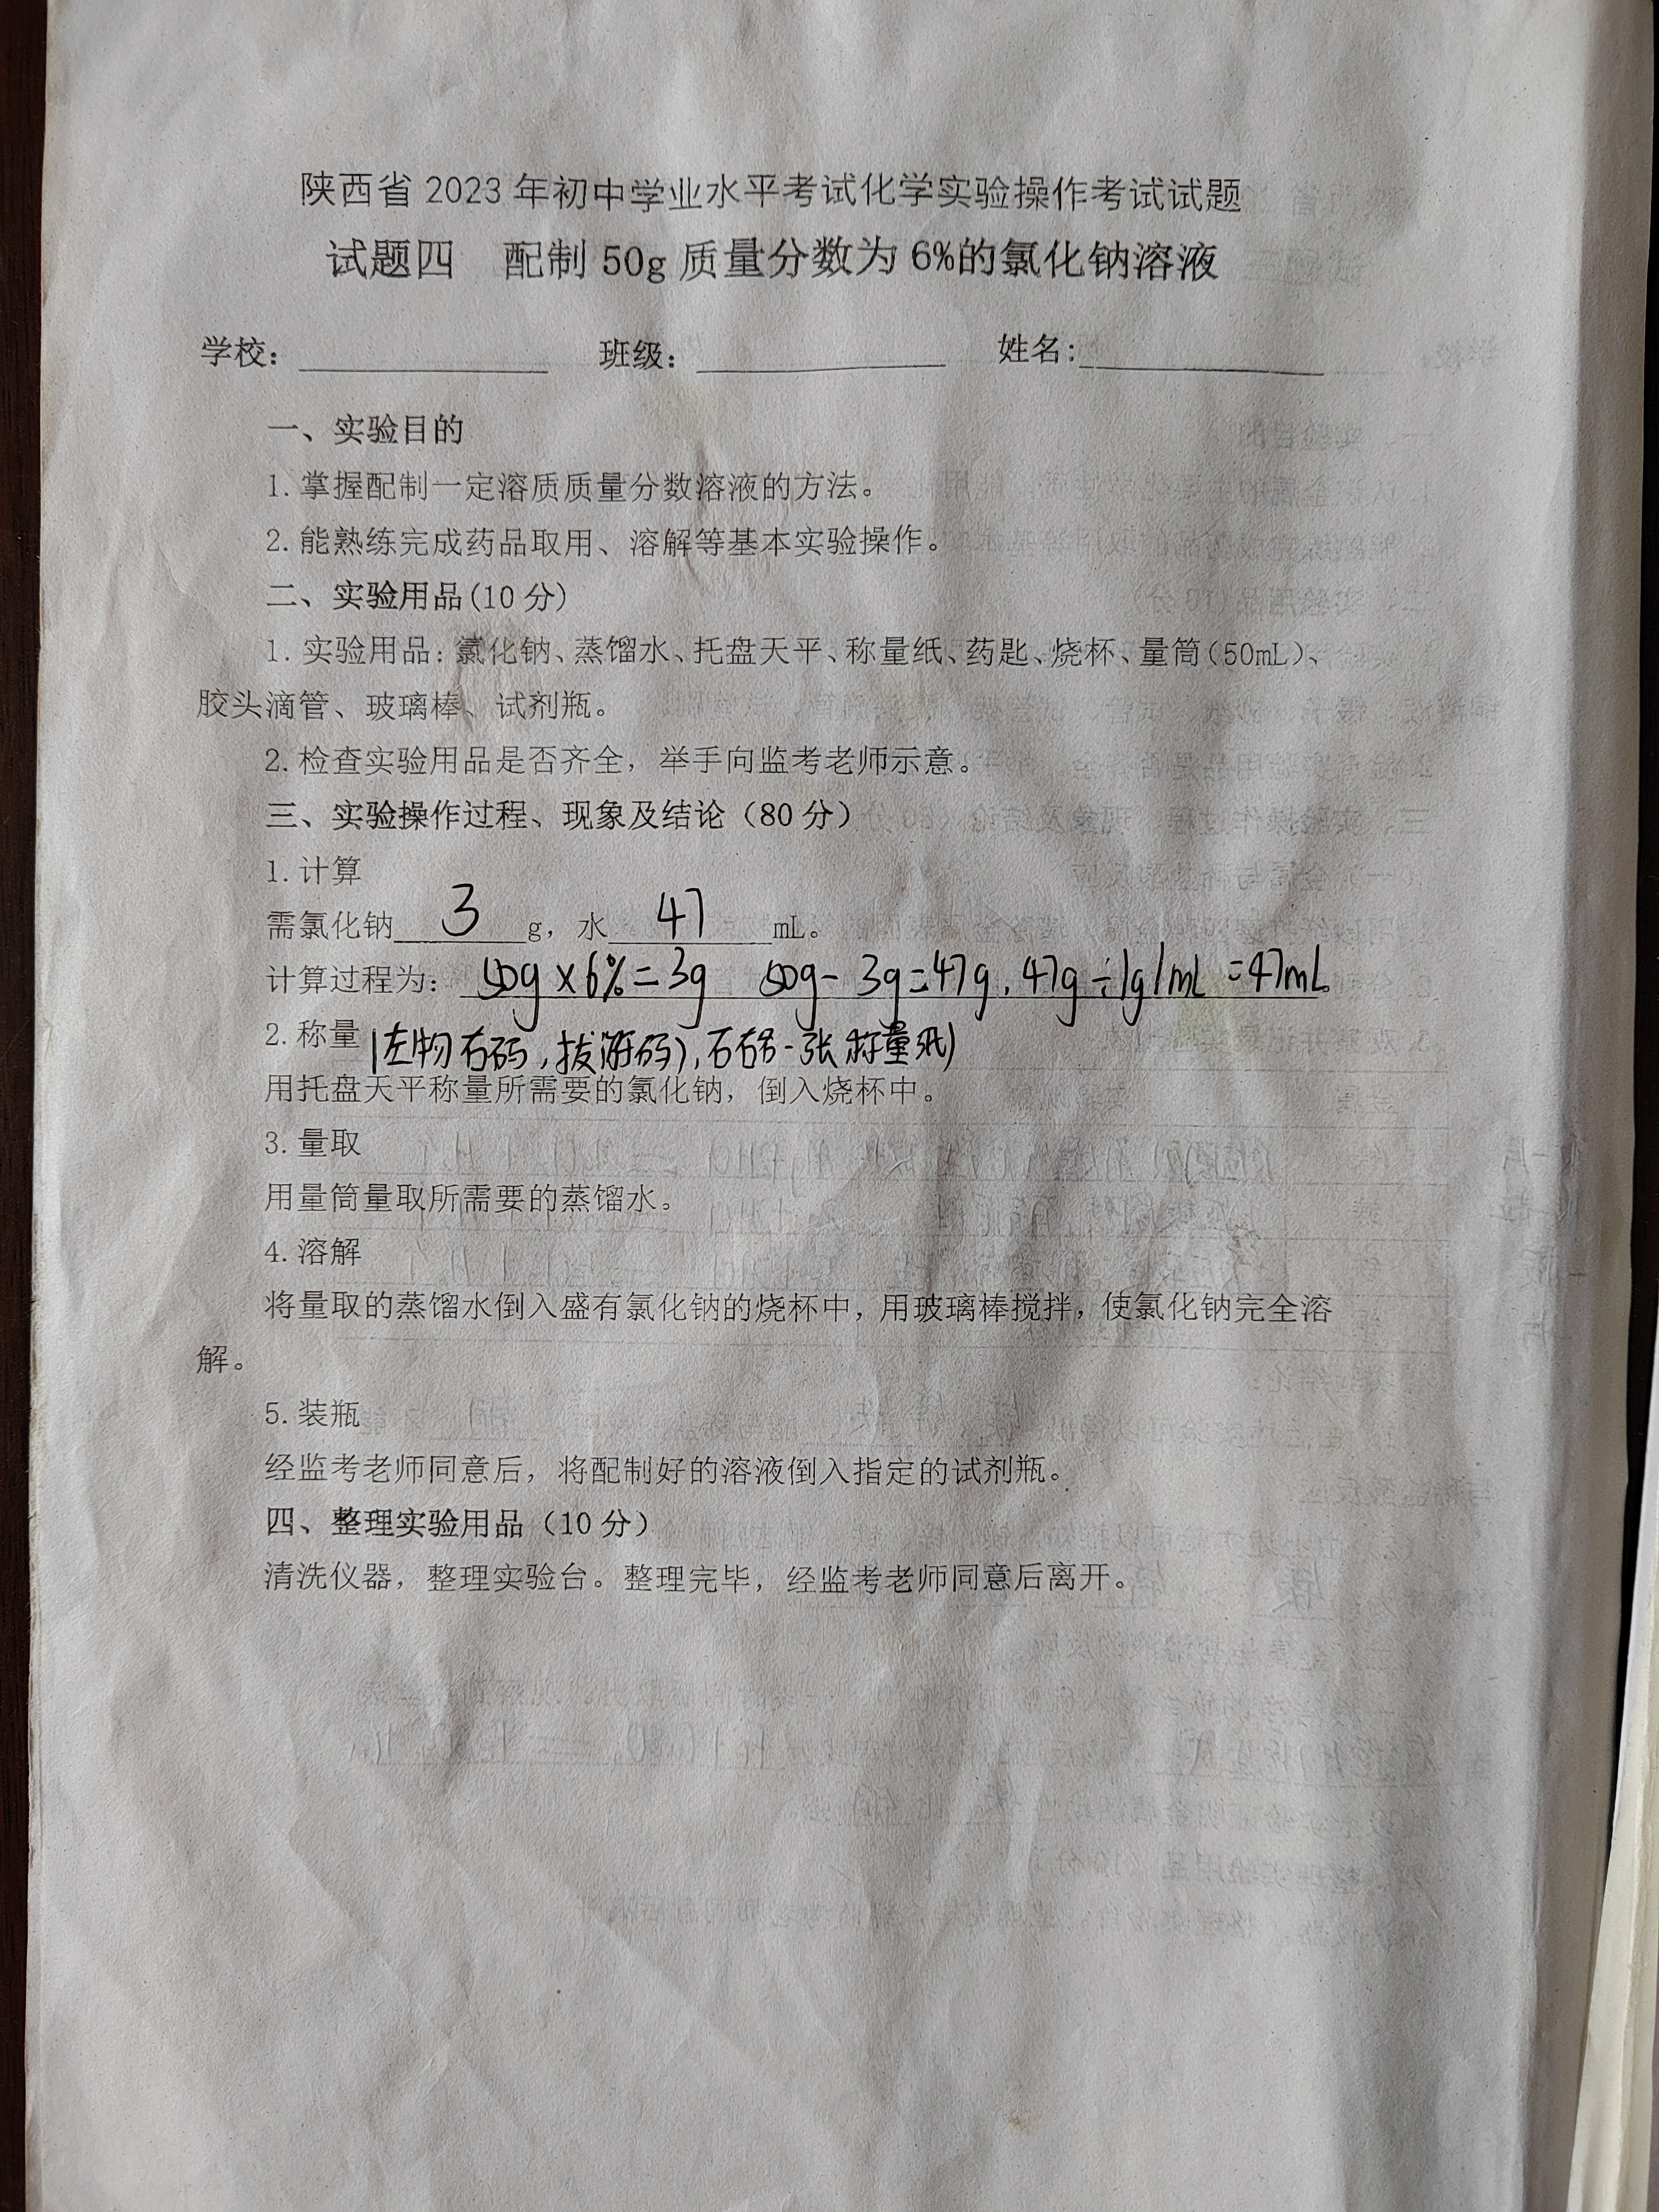 陕西省2023年初中学业水平考试化学实验操作考试试题
试题四 配制50g质量分数为6%的氯化钠溶液
学校： 班级： 姓名：
一、实验目的
1.掌握配制一定溶质质量分数溶液的方法。
2.能熟练完成药品取用、溶解等基本实验操作。
二、实验用品(10分)
1.实验用品：氯化钠、蒸馏水、托盘天平、称量纸、药匙、烧杯、量筒(50mL)、
胶头滴管、玻璃棒、试剂瓶。
2.检查实验用品是否齐全，举手向监考老师示意。
三、实验操作过程、现象及结论（80分）
1.计算
需氯化钠 3 g，水 47 mL。
计算过程为：50g×6%=3g 50g-3g=47g，47g÷1g/mL=47mL
2.称量 (左物右码，拨游码)，右一张称量纸)
用托盘天平称量所需要的氯化钠，倒入烧杯中。
3.量取
用量筒量取所需要的蒸馏水。
4.溶解
将量取的蒸馏水倒入盛有氯化钠的烧杯中，用玻璃棒搅拌，使氯化钠完全溶
解。
5.装瓶
经监考老师同意后，将配制好的溶液倒入指定的试剂瓶。
四、整理实验用品（10分）
清洗仪器，整理实验台。整理完毕，经监考老师同意后离开。